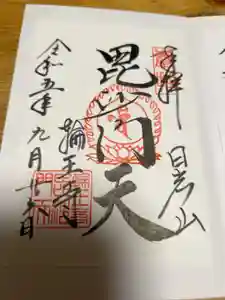 奉拝
日光山
毘沙門天
輪王寺
令和五年九月十六日